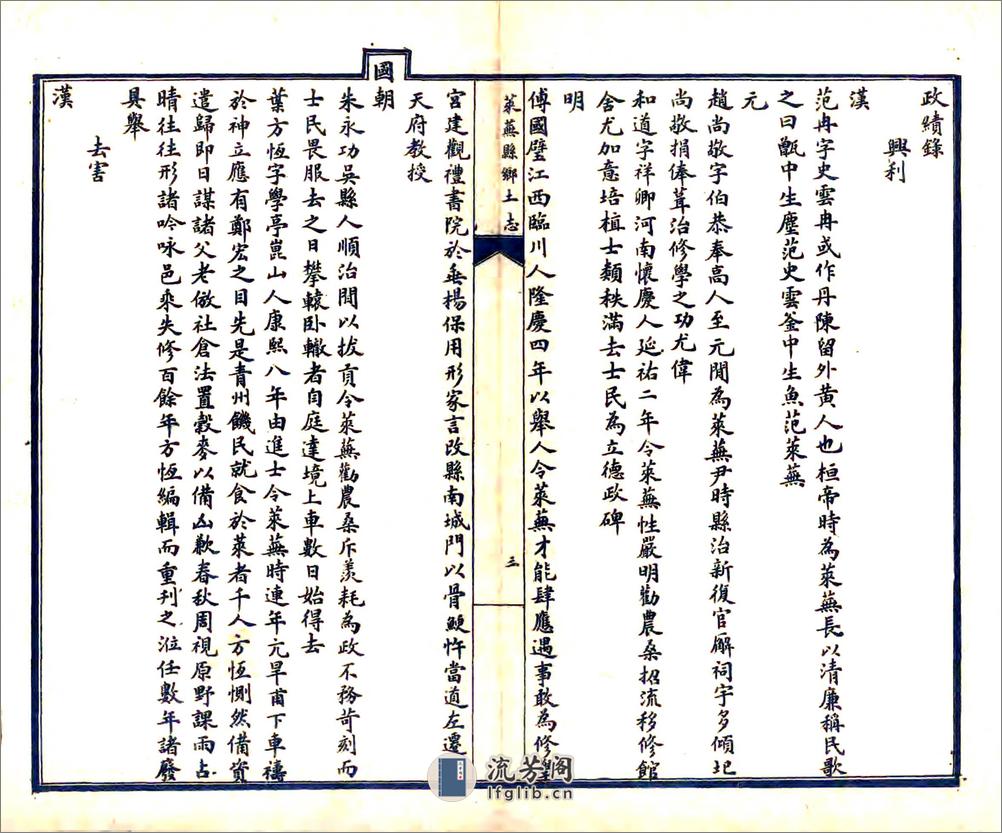 政績錄
興利
漢
范冉字史雲冉或作丹陳留外黃人也桓帝時為萊蕪長以清廉稱民歌
之曰甑中生塵范史雲釜中生魚范萊蕪
元
趙尚敬字伯恭奉高人至元間為萊蕪尹時縣治新復官廨祠宇多傾圮
尚敬捐俸葺治修學之功尤偉
和道字祥卿河南懷慶人延祐二年令萊蕪性嚴明勸農桑招流移修館
舍尤加意培植士類秩滿去士民為立德政碑
明
傅國璧江西臨川人隆慶四年以舉人令萊蕪才能肆應遇事敢為修聖
萊蕪縣鄉土志
三
宮建觀禮書院於垂楊保用形家言改縣南城門以骨鯁忤當道左遷
天府教授
國朝
朱永功吳縣人順治間以拔貢令萊蕪勸農桑斥羨耗為政不務苛刻而
士民畏服去之日攀轅卧轍者自庭達境上車數日始得去
葉方恆字學亭崑山人康熙八年由進士令萊蕪時連年亢旱甫下車禱
於神立應有鄭宏之目先是青州饑民就食於萊者千人方恆惻然備資
遣歸即日謀諸父老倣社倉法置穀麥以備凶歉春秋周視原野課雨占
晴往往形諸吟咏邑乘失修百餘年方恆編輯而重刊之涖任數年諸廢
具舉
去害
漢
流芳阁
lfglib.cn